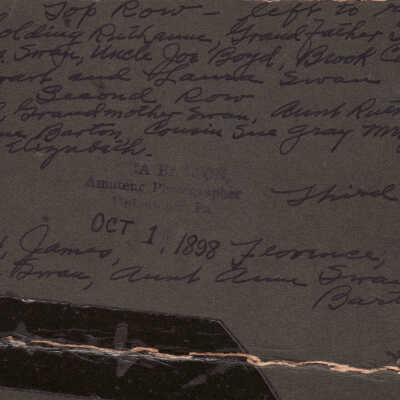 Top Row - left to
olding Ruthanne, Grandfather S
Swan, Uncle Joe Boyd, Brook C
and Laura Swan
Second Row
Grandmother Swan, Aunt Ruth
Barton, Cousin Sue Gray
Elizabeth.
Amateur Photographer
Pa
Third
OCT 1, 1898
James, Florence,
Swan, Aunt Anne Swan
Bart